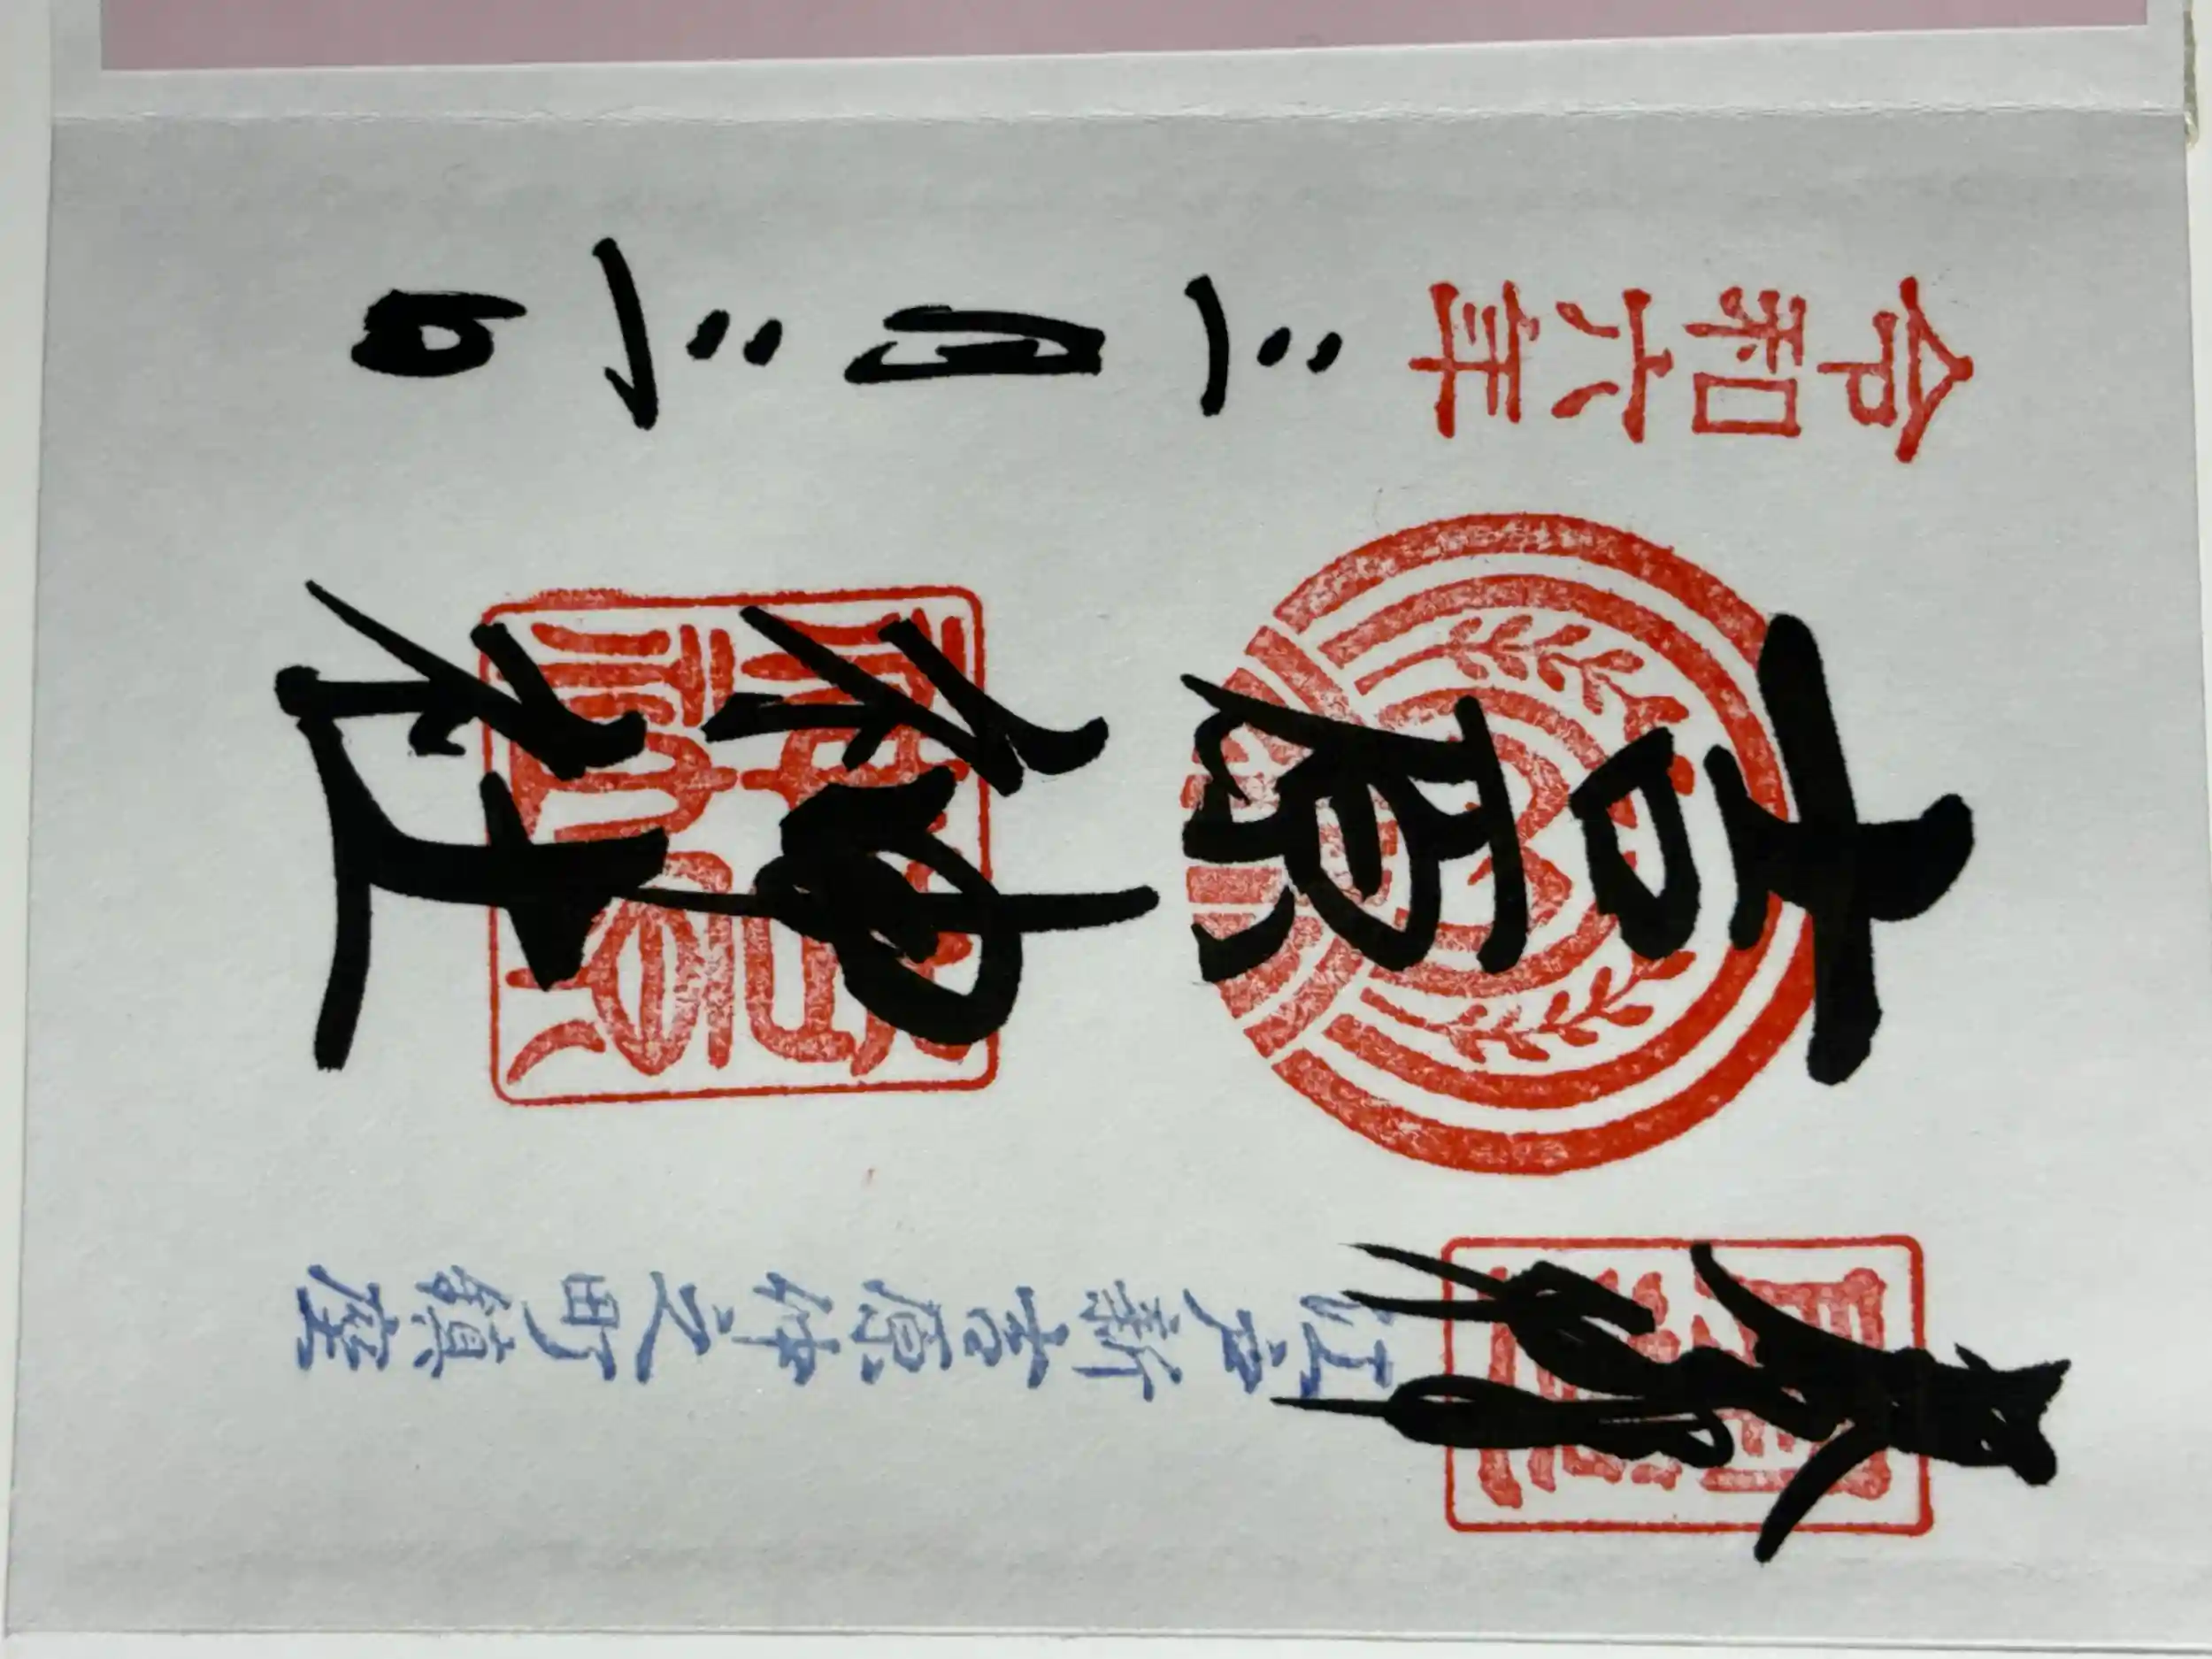 奉拝
江戸新吉原仲之町鎮座
吉原神社
令和六年三月三日